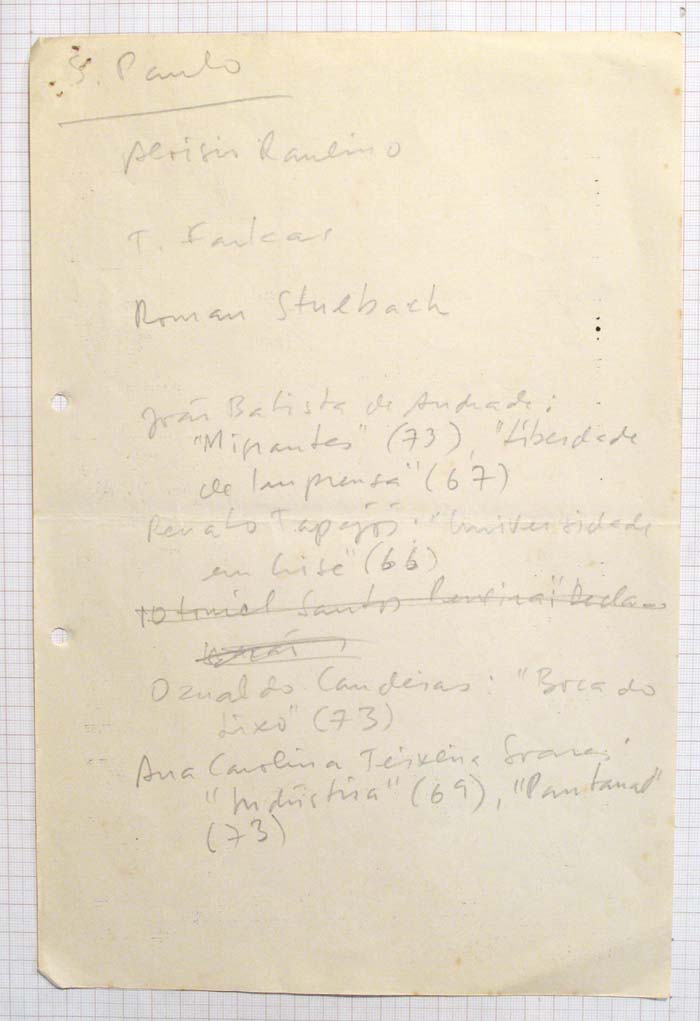 S. Paulo
Aloisio Raulino
T. Farkas
Roman Stulbach
João Batista de Andrade:
"Migrantes" (73), "Liberdade
de Imprensa" (67)
Renato Tapajós: "Universidade
em Crise" (66)
Otoniel Santos Pereira: "Decla-
Ozualdo Candeias: "Boca do
Lixo" (73)
Ana Carolina Teixeira Soares:
"Indústria" (69), "Pantanal"
(73)